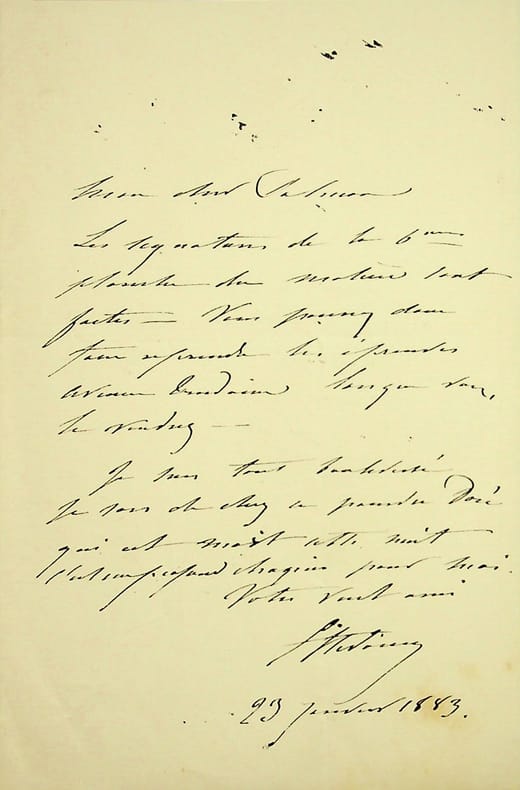 Mon cher Salmon
Les signatures de la 6ème
planche du Molière sont
faites — Vous pouvez donc
faire reprendre les épreuves
avenue Trudaine lorsque vous
le voudrez —
Je suis tout bouleversé
je sors de chez ce pauvre Doré
qui est mort cette nuit
c'est un profond chagrin pour moi.
Votre vieil ami
23 janvier 1883.